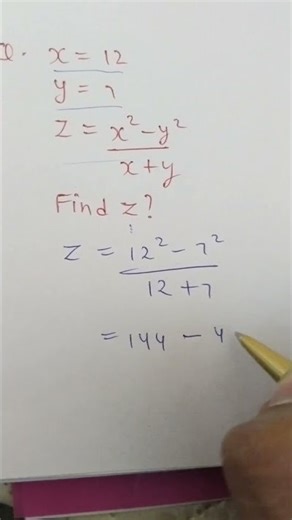 Q. x = 12
y = 7
z = x² - y² / x + y
Find z?
z = 12² - 7² / 12 + 7
= 144 - 4